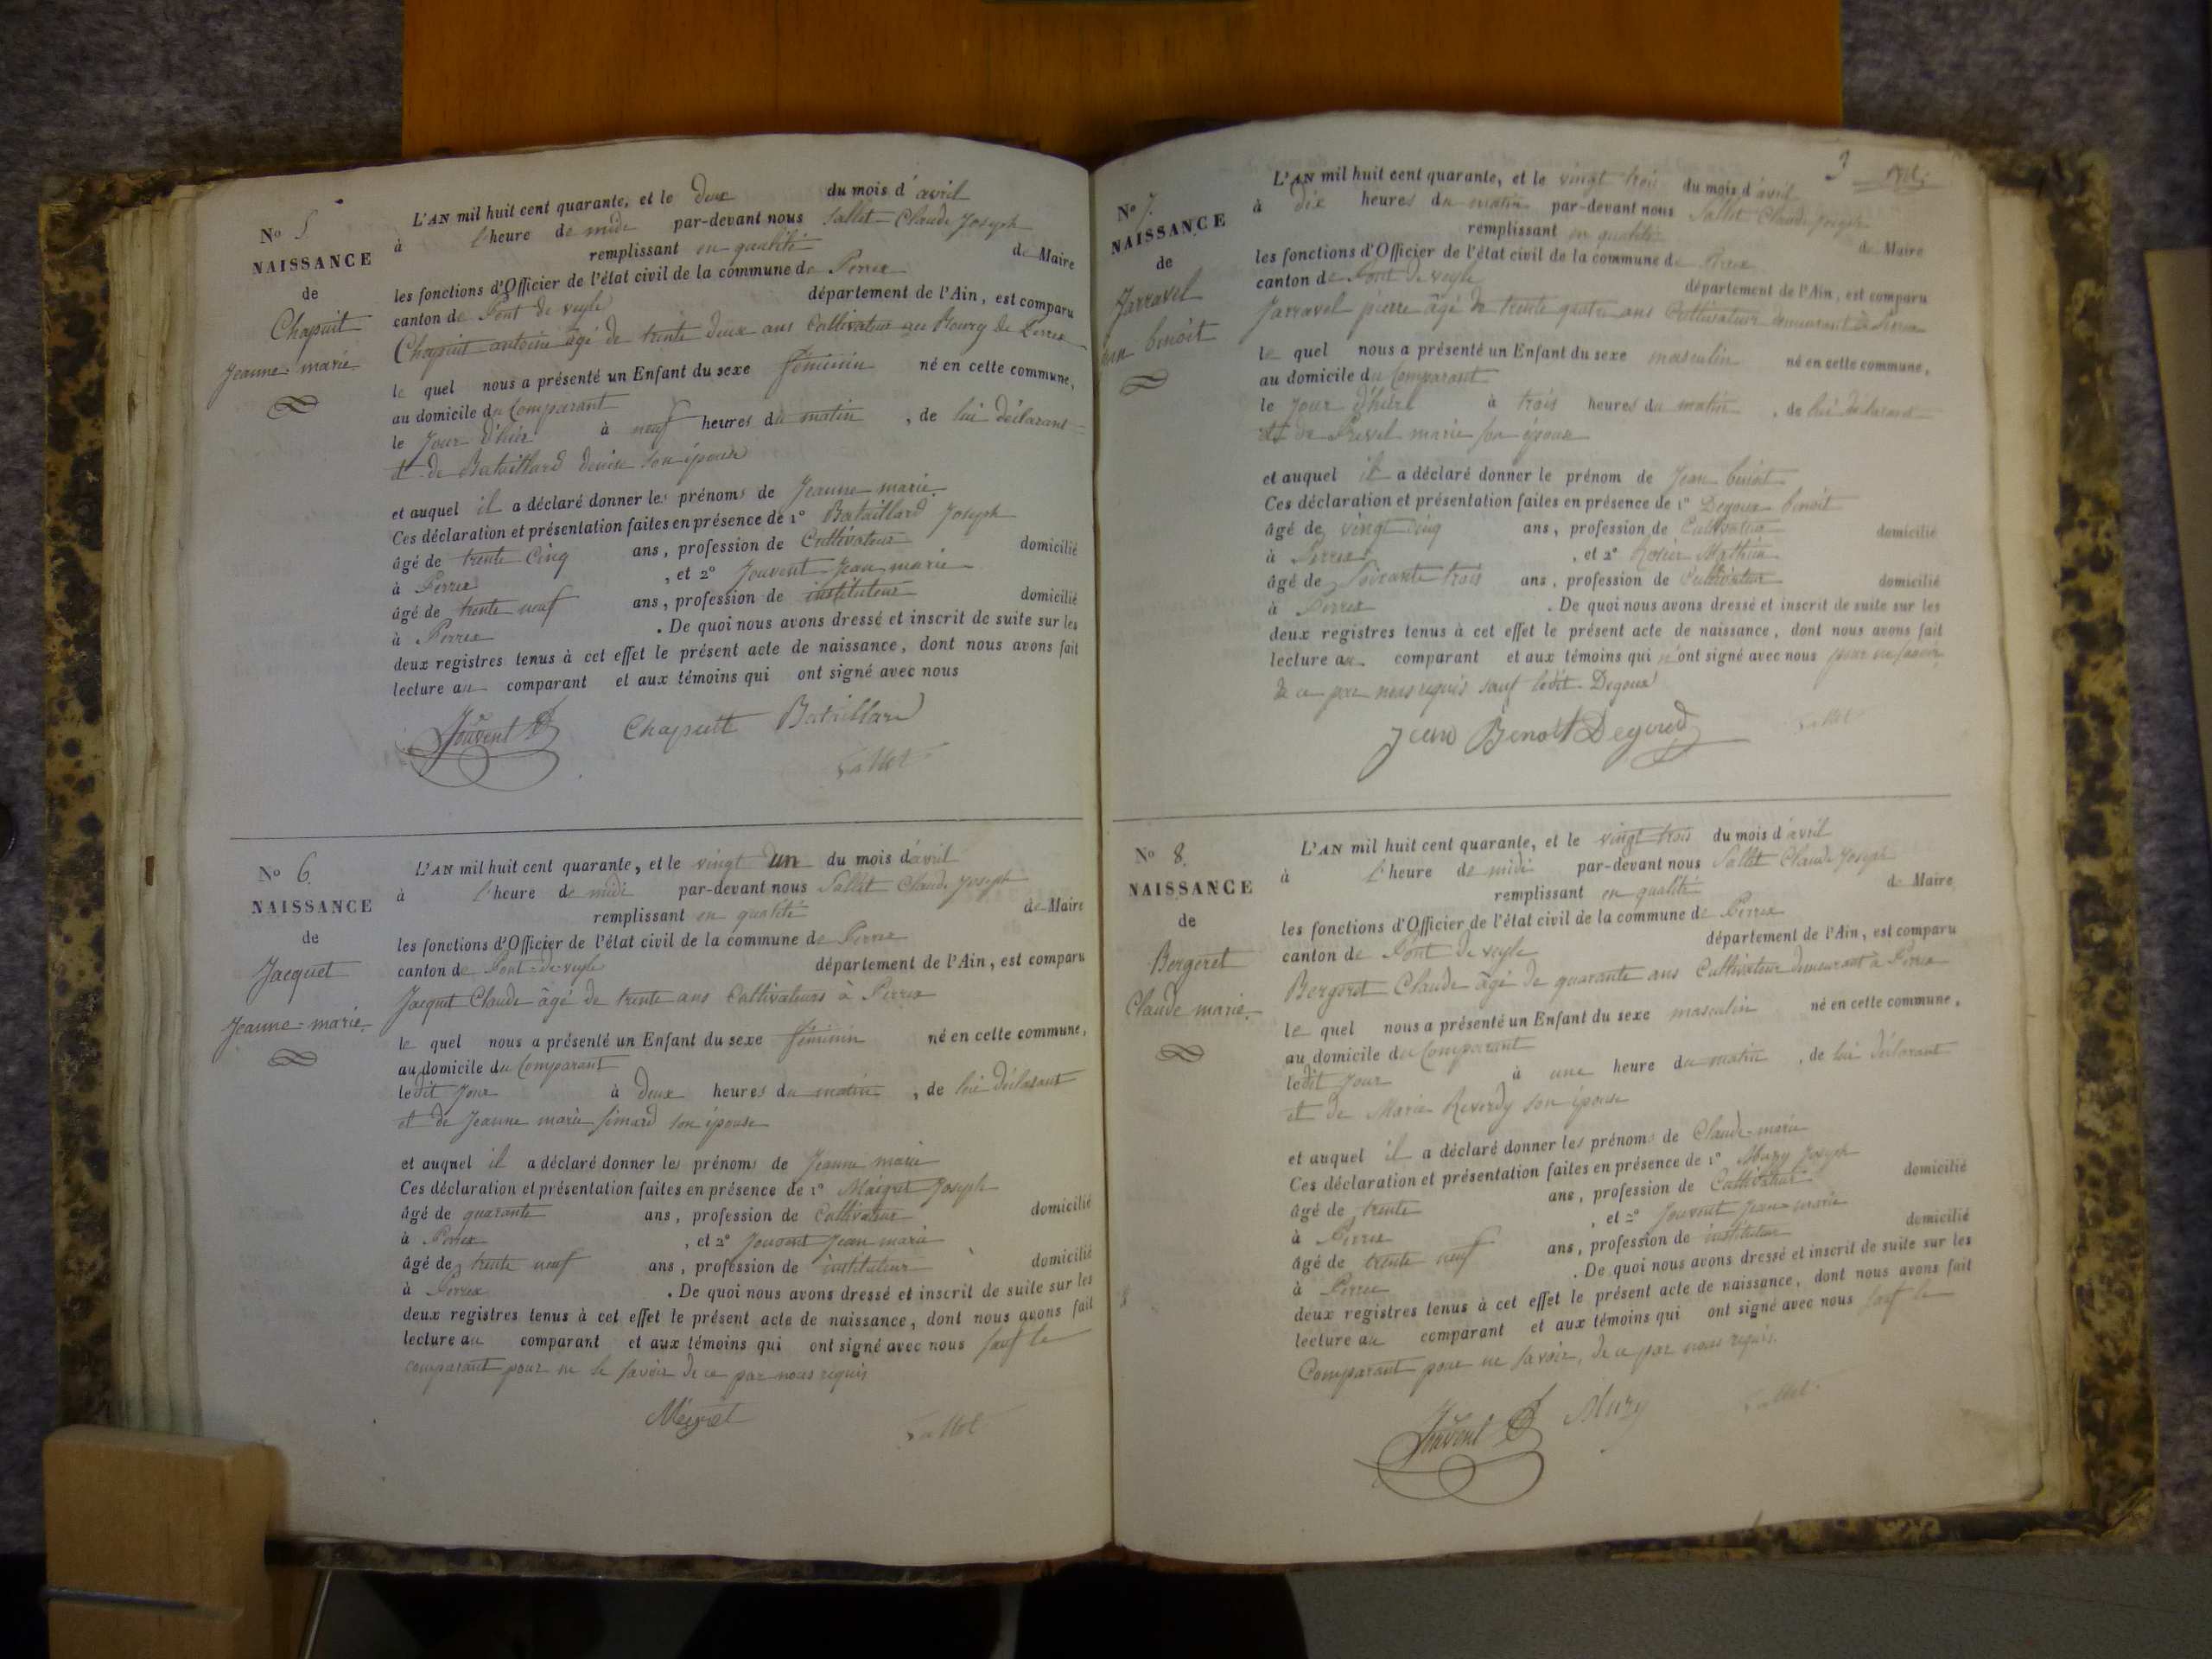 No 5
NAISSANCE
de
Chapuit
Jeanne-marie
L'AN mil huit cent quarante, et le deux du mois d'avril
à l'heure de midi par-devant nous Sallet Claude Joseph
remplissant en qualité de Maire
les fonctions d'Officier de l'état civil de la commune de Perrex
canton de Pont de veyle département de l'Ain, est comparu
Chapuit antoine âgé de trente deux ans Cultivateur au Bourg de Perrex
le quel nous a présenté un Enfant du sexe féminin né en cette commune,
au domicile du Comparant
le Jour d'hier à neuf heures du matin, de lui déclarant
et de Bataillard denise son épouse
et auquel il a déclaré donner les prénoms de Jeanne-marie
Ces déclaration et présentation faites en présence de 1° Bataillard Joseph
âgé de trente cinq ans, profession de Cultivateur domicilié
à Perrex, et 2° Jouvent Jean marie
âgé de trente neuf ans, profession de instituteur domicilié
à Perrex. De quoi nous avons dressé et inscrit de suite sur les
deux registres tenus à cet effet le présent acte de naissance, dont nous avons fait
lecture au comparant et aux témoins qui ont signé avec nous
Jouvent Chapuit Bataillard
Sallet
No 6.
NAISSANCE
de
Jacquet
Jeanne-marie
L'AN mil huit cent quarante, et le vingt un du mois d'avril
à l'heure de midi par-devant nous Sallet Claude Joseph
remplissant en qualité de Maire
les fonctions d'Officier de l'état civil de la commune de Perrex
canton de Pont-de-veyle département de l'Ain, est comparu
Jacquet Claude âgé de trente ans Cultivateurs à Perrex
le quel nous a présenté un Enfant du sexe féminin né en cette commune,
au domicile du Comparant
ledit Jour à deux heures du matin, de lui déclarant
et de Jeanne marie simard son épouse
et auquel il a déclaré donner les prénoms de Jeanne marie
Ces déclaration et présentation faites en présence de 1° Joseph
âgé de quarante ans, profession de Cultivateur domicilié
à Perrex, et 2° Jouvent Jean marie
âgé de trente neuf ans, profession de instituteur domicilié
à Perrex. De quoi nous avons dressé et inscrit de suite sur les
deux registres tenus à cet effet le présent acte de naissance, dont nous avons fait
lecture au comparant et aux témoins qui ont signé avec nous sauf le
comparant pour ne le savoir de ce par nous requis
Sallet
3
No 7.
NAISSANCE
de
Jarravel
benoit
L'AN mil huit cent quarante, et le vingt trois du mois d'avril
à dix heures du matin par-devant nous Sallet Claude Joseph
remplissant en qualité de Maire
les fonctions d'Officier de l'état civil de la commune de Perrex
canton de Pont de veyle département de l'Ain, est comparu
Jarravel pierre âgé de trente quatre ans Cultivateur demeurant à Perrex
le quel nous a présenté un Enfant du sexe masculin né en cette commune,
au domicile du Comparant
le Jour d'hier à trois heures du matin, de lui déclarant
et de marie son épouse
et auquel il a déclaré donner le prénom de Jean benoit
Ces déclaration et présentation faites en présence de 1° Degoux benoit
âgé de vingt cinq ans, profession de Cultivateur domicilié
à Perrex, et 2° Mathieu
âgé de soixante trois ans, profession de Cultivateur domicilié
à Perrex. De quoi nous avons dressé et inscrit de suite sur les
deux registres tenus à cet effet le présent acte de naissance, dont nous avons fait
lecture au comparant et aux témoins qui n'ont signé avec nous pour ne savoir
de ce par nous requis sauf ledit Degoux
Jean Benoit Degoud
Sallet
No 8.
NAISSANCE
de
Bergeret
Claude marie
L'AN mil huit cent quarante, et le vingt trois du mois d'avril
à l'heure de midi par-devant nous Sallet Claude Joseph
remplissant en qualité de Maire
les fonctions d'Officier de l'état civil de la commune de Perrex
canton de Pont de veyle département de l'Ain, est comparu
Bergeret Claude âgé de quarante ans Cultivateur demeurant à Perrex
le quel nous a présenté un Enfant du sexe masculin né en cette commune,
au domicile du Comparant
ledit Jour à une heure du matin, de lui déclarant
et de Marie Reverdy son épouse
et auquel il a déclaré donner les prénoms de Claude-marie
Ces déclaration et présentation faites en présence de 1° Mury Joseph
âgé de trente ans, profession de Cultivateur domicilié
à Perrex, et 2° Jouvent Jean-marie
âgé de trente neuf ans, profession de instituteur domicilié
à Perrex. De quoi nous avons dressé et inscrit de suite sur les
deux registres tenus à cet effet le présent acte de naissance, dont nous avons fait
lecture au comparant et aux témoins qui ont signé avec nous sauf le
Comparant pour ne savoir, de ce par nous requis.
Jouvent Mury Sallet